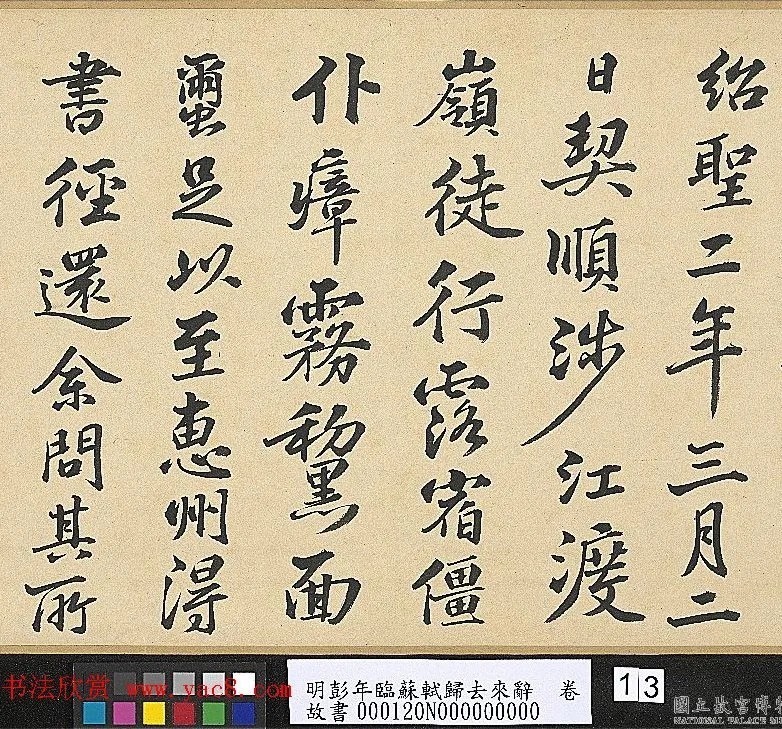 紹聖二年三月二
日契順涉江渡
嶺徒行露宿僵
仆瘴霧黧面
蠒足以至惠州得
書徑還余問其所
书法欣赏 www.yac8.com
明彭年臨蘇軾歸去來辭 卷
故書 000120N000000000
13
國立故宮博
NATIONAL PALACE